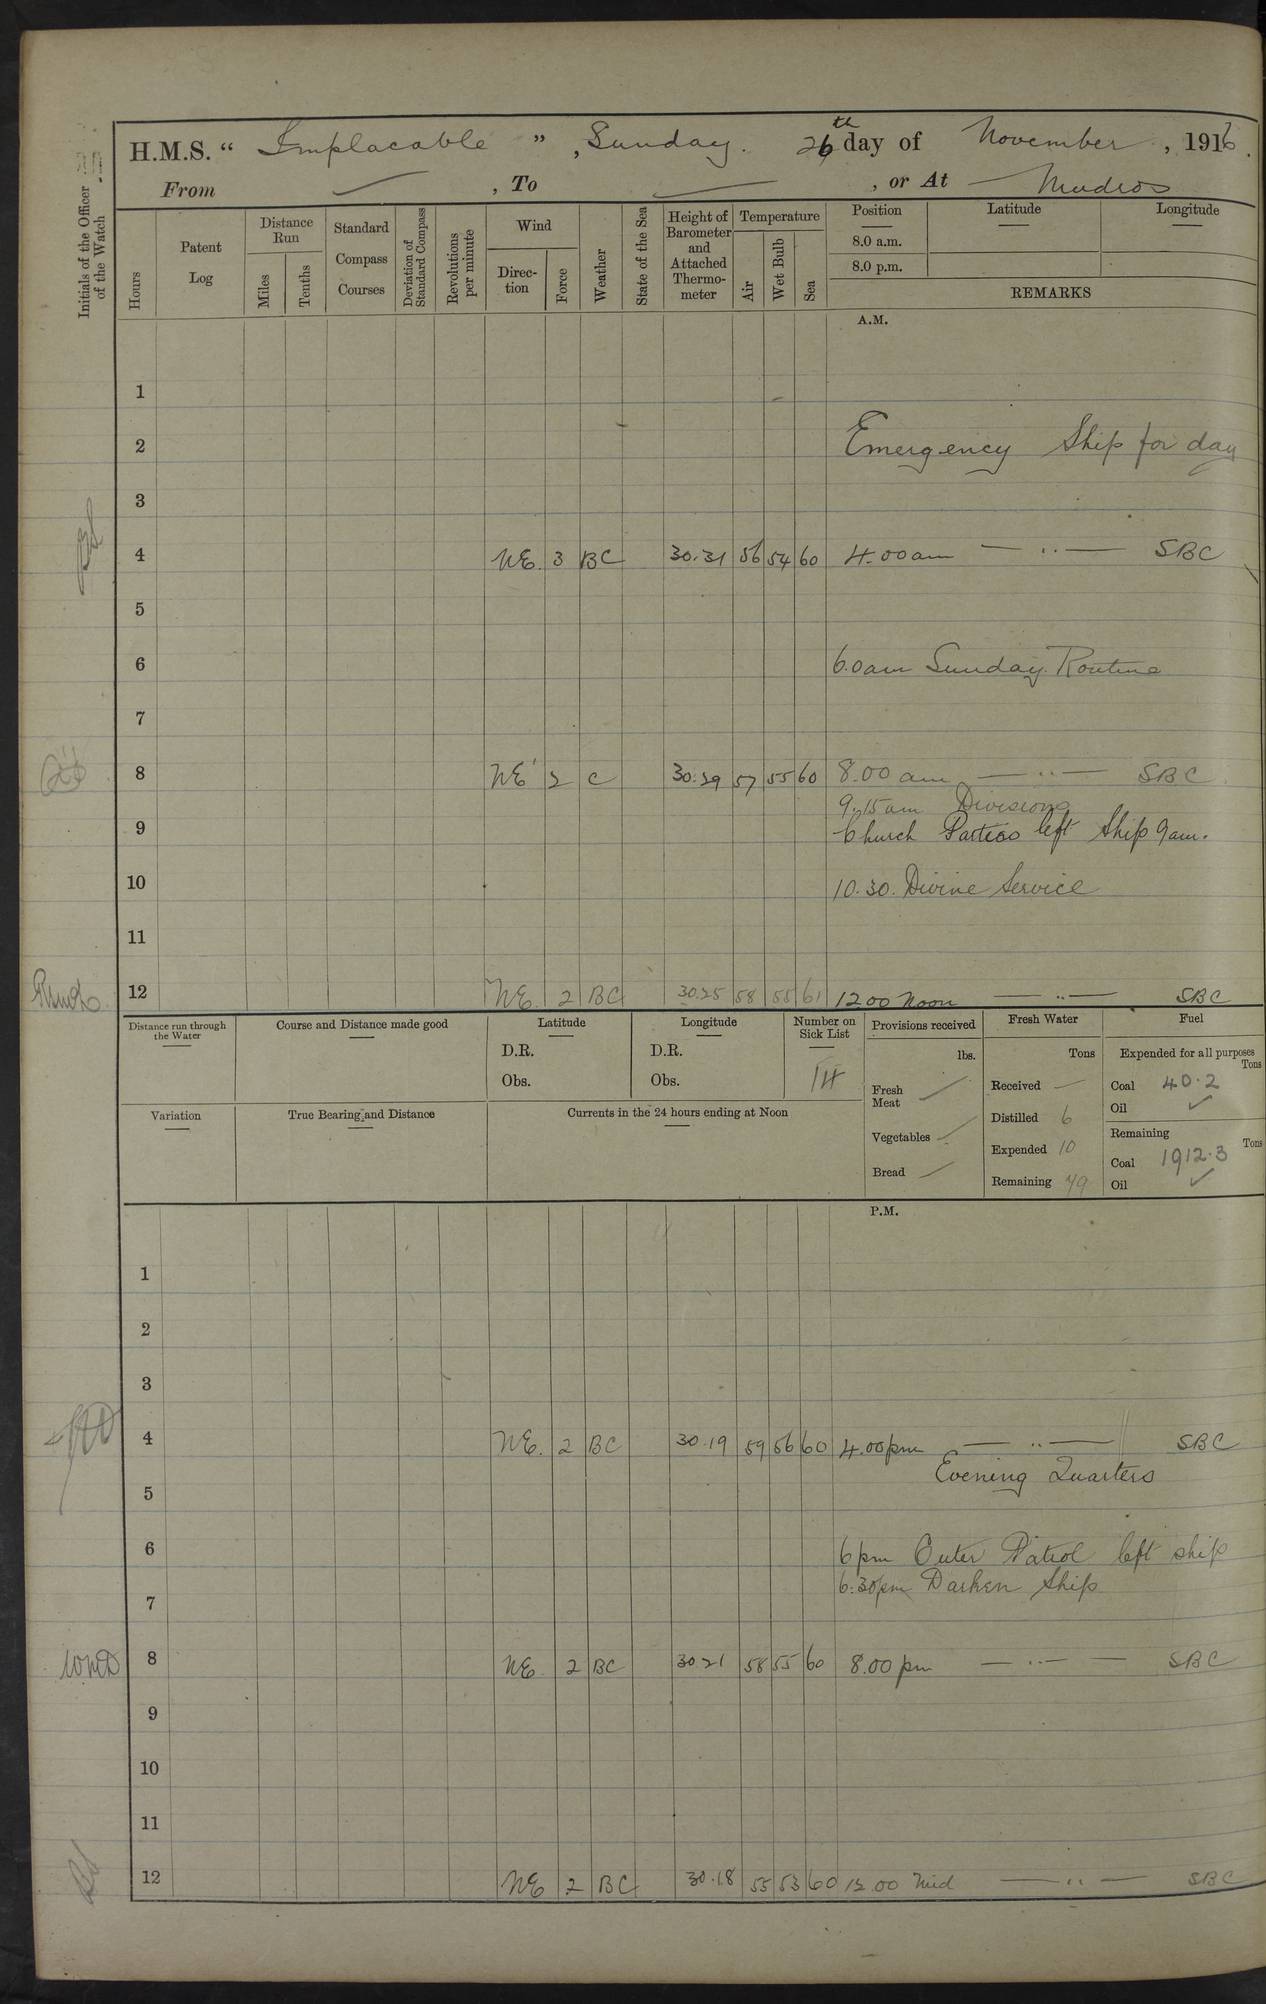 H.M.S. “ Implacable ” , Sunday. 26th day of November , 1916.
From , To , or At Mudros
Initials of the Officer of the Watch
Hours
Patent Log
Distance Run
Miles
Tenths
Standard Compass Courses
Deviation of Standard Compass
Revolutions per minute
Wind
Direc-tion
Force
Weather
State of the Sea
Height of Barometer and Attached Thermo-meter
Temperature
Air
Wet Bulb
Sea
Position Latitude Longitude
8.0 a.m.
8.0 p.m.
REMARKS
A.M.
1
2 Emergency Ship for day
3
4 NE. 3 BC 30.31 56 54 60 4.00am — ·· — SBC
5
6 6.0am Sunday Routine
7
8 NE 2 C 30.29 57 55 60 8.00 am — ·· — SBC
9.15am Divisions
9 Church Parties left Ship 9am.
10 10.30. Divine Service
11
12 NE. 2 BC 30.25 58 55 61 12 00 Noon — ·· — SBC
Distance run through the Water
Course and Distance made good
Latitude
D.R.
Obs.
Longitude
D.R.
Obs.
Number on Sick List
14
Variation
True Bearing and Distance
Currents in the 24 hours ending at Noon
Provisions received
lbs.
Fresh Meat
Vegetables
Bread
Fresh Water
Tons
Received —
Distilled 6
Expended 10
Remaining 49
Fuel
Expended for all purposes
Tons
Coal 40.2
Oil
Remaining
Tons
Coal 1912.3
Oil
P.M.
1
2
3
4 NE. 2 BC 30.19 59 56 60 4.00pm — ·· — SBC
Evening Quarters
5
6 6pm Outer Patrol left ship
6.30pm Darken Ship
7
8 NE. 2 BC 30.21 58 55 60 8.00 pm — ·· — SBC
9
10
11
12 NE 2 BC 30.18 55 53 60 12.00 Mid — ·· — SBC